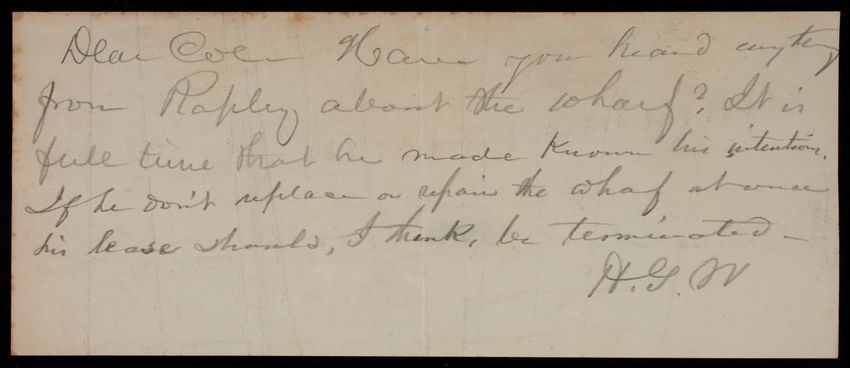 Dear Col Have you heard anything
from Rapley about the wharf? It is
full time that he made known his intentions.
If he don't replace or repair the wharf at once
his lease should, I think, be terminated—
H. G. W